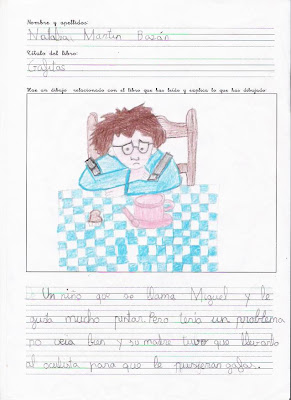 Nombre y apellidos:
Natalia Martin Bazán
Título del libro:
Gafitas
Haz un dibujo relacionado con el libro que has leído y explica lo que has dibujado
Un niño que se llama Miguel y le
gusta mucho pintar. Pero tenía un problema
no veía bien y su madre tuvo que llevarlo
al oculista para que le pusieran gafas.